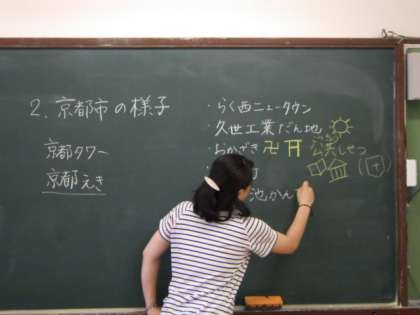 2. 京都市の様子
京都タワー
京都えき
・らく西ニュータウン
・久世工業だん地
・おかざき 卍 公共しせつ
町
池かん